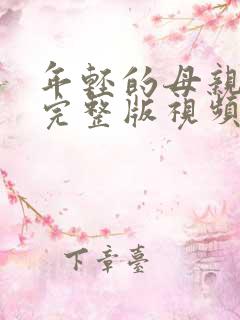 年輕的母親
完整版視頻
下章臺